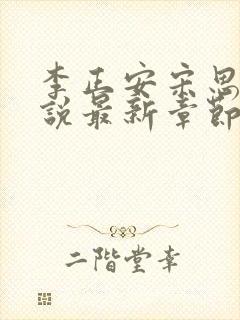 李正安宋思
說最新章節
二階堂幸